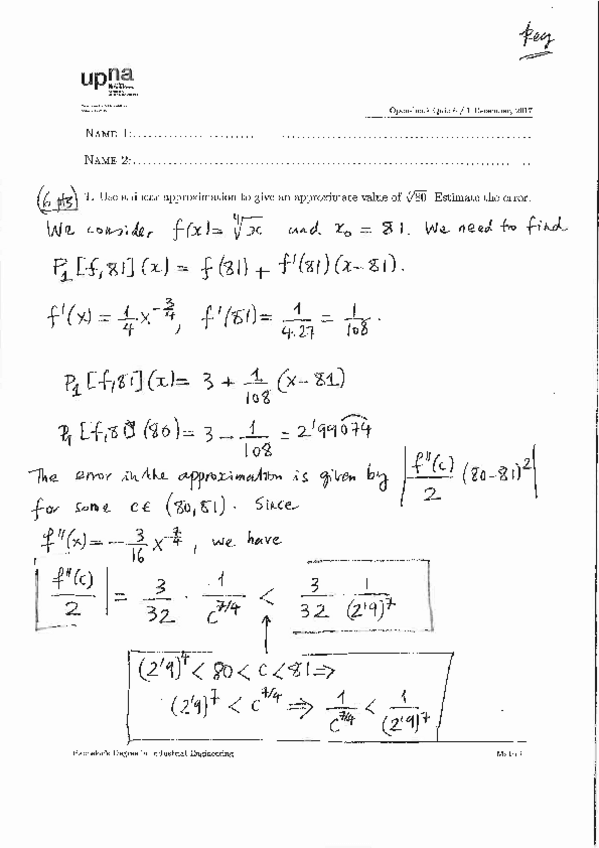 Key
upna
Open-book Quiz 6 / 1 December, 2017
NAME 1:
NAME 2:
(6 pts) 1. Use a linear approximation to give an approximate value of ∜80. Estimate the error.
We consider f(x)= ∜x and x₀ = 81. We need to find
P₁[f,81](x) = f(81) + f'(81)(x-81).
f'(x) = 1/4 x^(-3/4), f'(81) = 1/(4·27) = 1/108.
P₁[f,81](x) = 3 + 1/108 (x-81)
P₁[f,81](80) = 3 - 1/108 = 2'99074
The error in the approximation is given by |f''(c)/2 (80-81)²|
for some c∈ (80,81). Since
f''(x) = -3/16 x^(-7/4), we have
|f''(c)/2| = 3/32 · 1/c^(7/4) < 3/32 · 1/(2'9)^7
(2'9)^4 < 80 < c < 81 ⇒
(2'9)^7 < c^(7/4) ⇒ 1/c^(7/4) < 1/(2'9)^7
Bachelor's Degree in Industrial Engineering